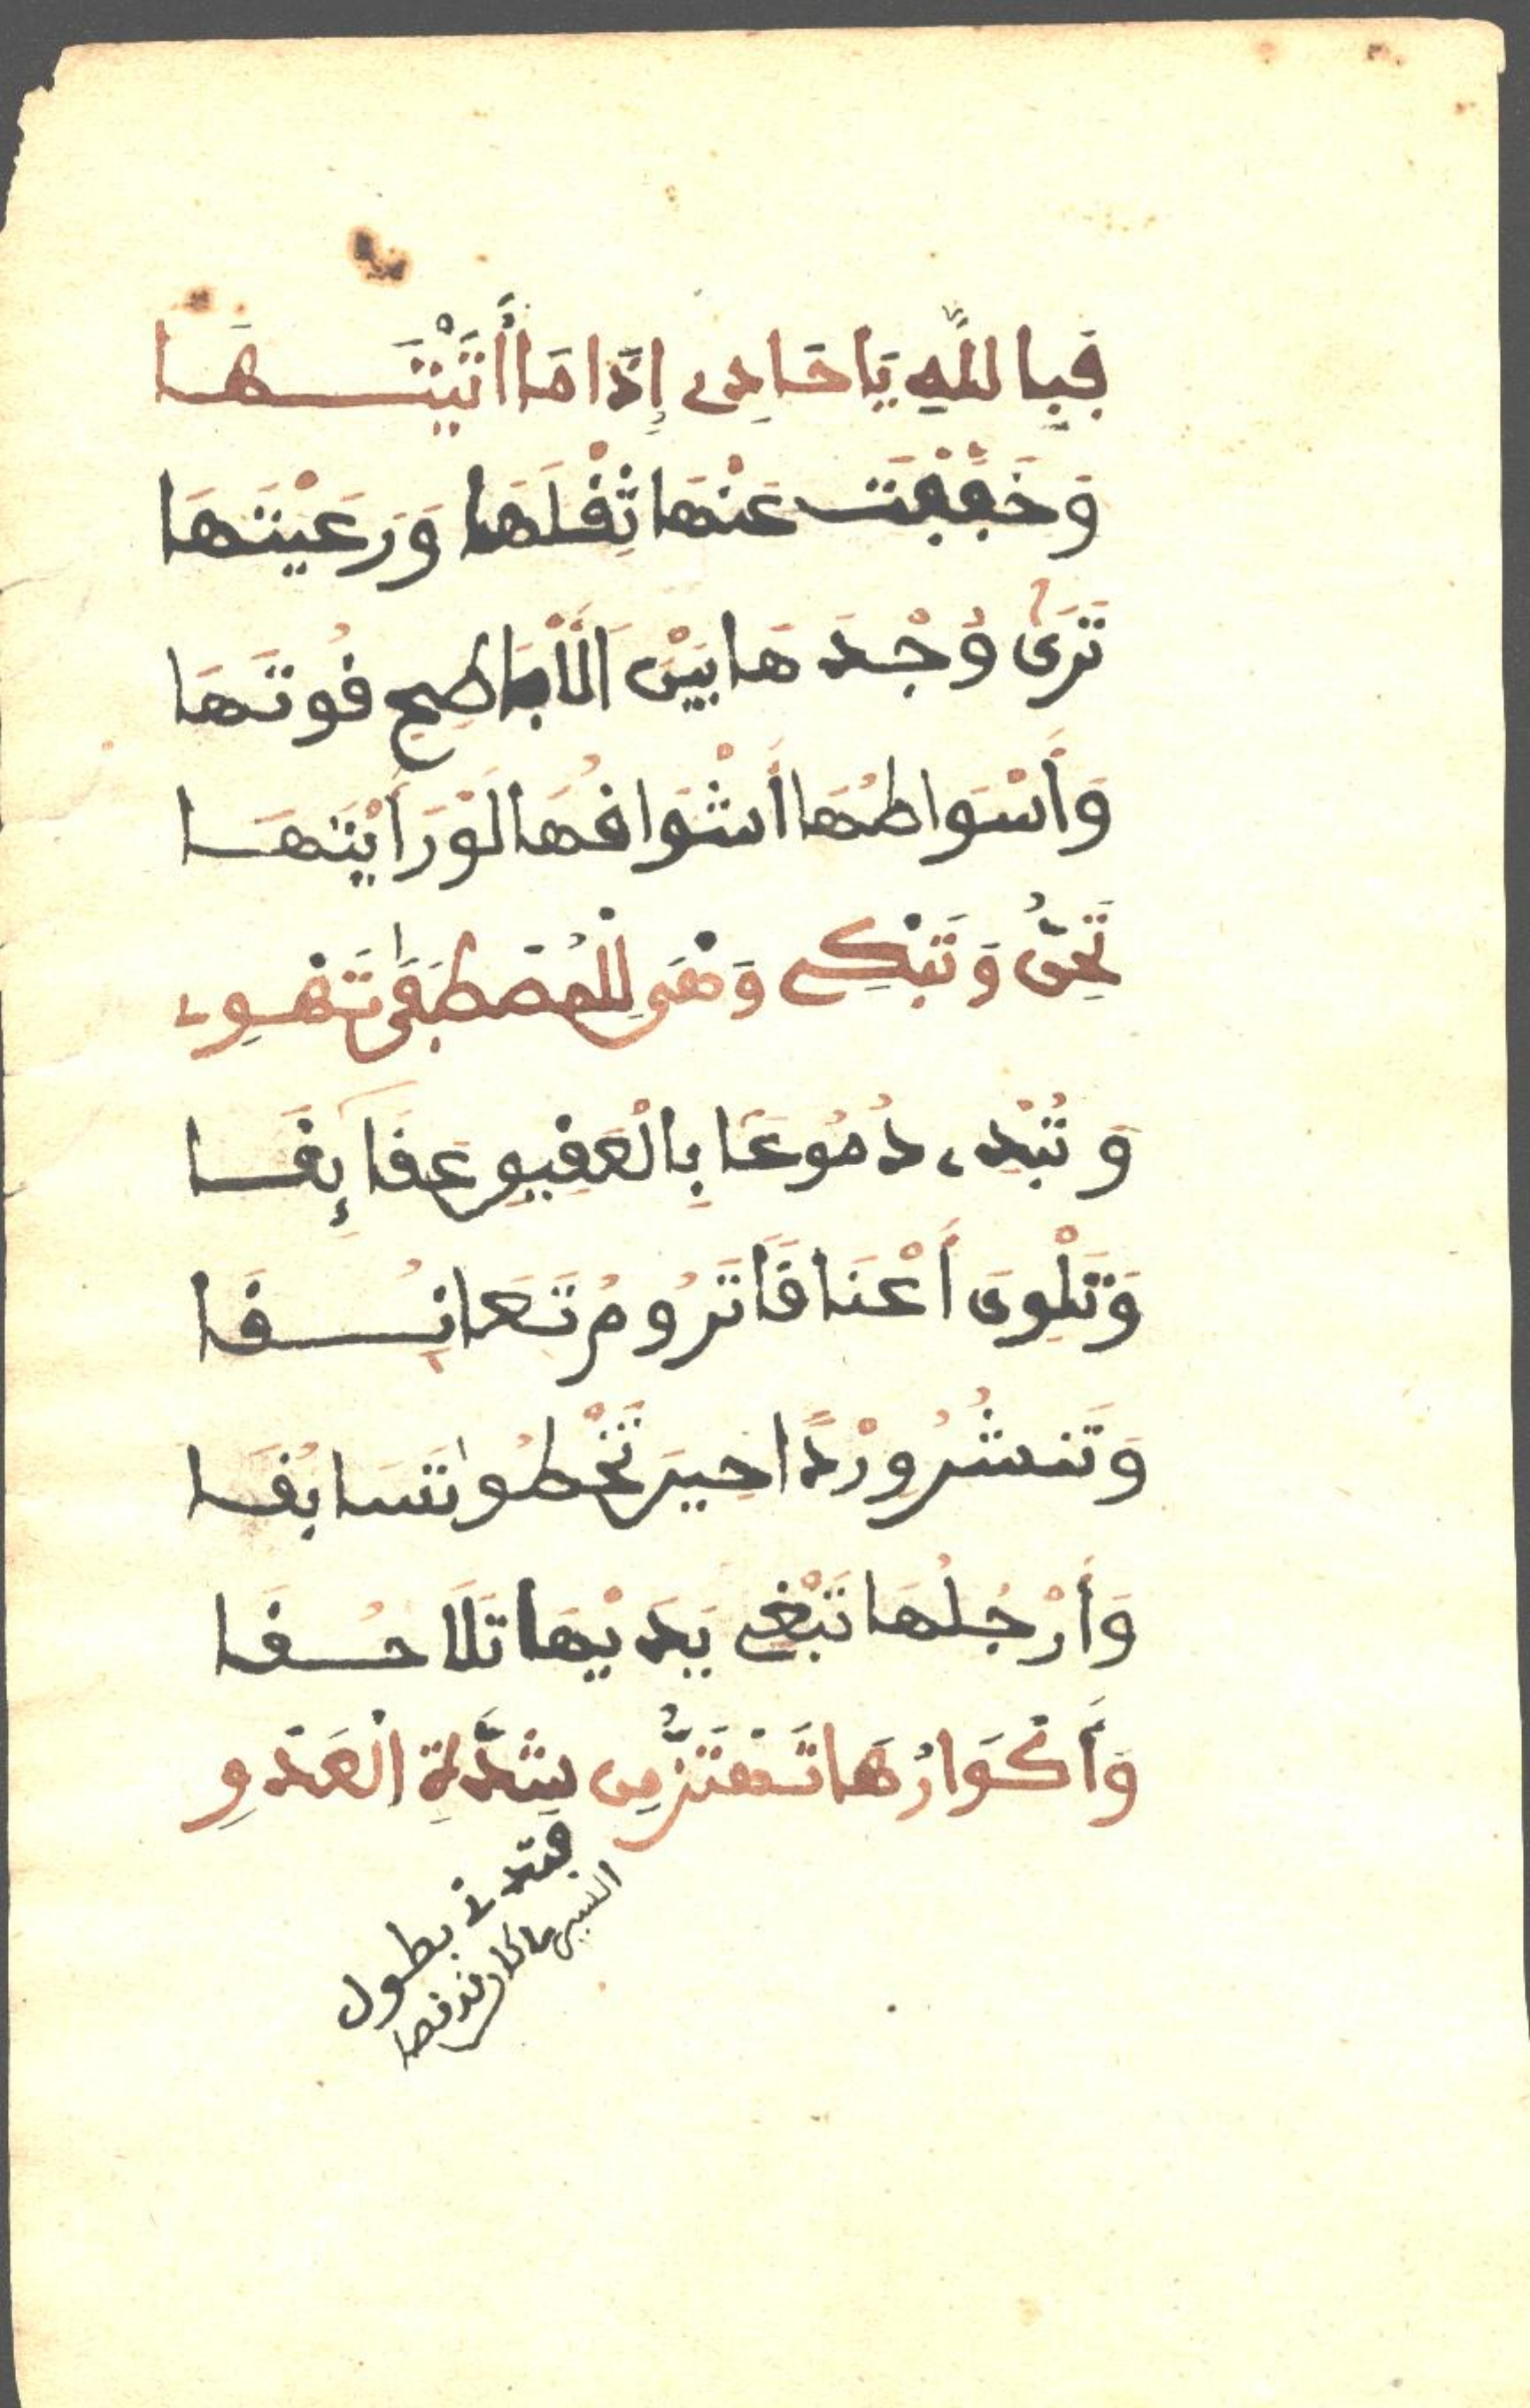 فَبِاللَّهِ يَا حَادِي إِذَا مَا أَتَيْتَهَا
وَخَفَّفْتَ عَنْهَا ثِقْلَهَا وَرَعَيْتَهَا
تَرَى وُجْدَهَا بَيْنَ الْأَبَاطِحِ قُوتَهَا
وَأَسْوَاطُهَا أَشْوَاقُهَا لَوْ رَأَيْتَهَا
تَحِنُّ وَتَبْكِي وَهْيَ لِلْمُصْطَفَى تَهْوِي
وَتُبْدِي دُمُوعًا بِالْعَقِيقِ عَقَائِقَا
وَتَلْوِي أَعْنَاقًا تَرُومُ تَعَانُقَا
وَتَنشُرُ وِرْدًا حِينَ تَخْطُو تَسَابُقَا
وَأَرْجُلُهَا تَبْغِي يَدَيْهَا تَلَاحُقَا
وَأَكْوَارُهَا تَهْتَزُّ مِن شِدَّةِ الْعَدْوِ
فتدني بطول
السير ما كان